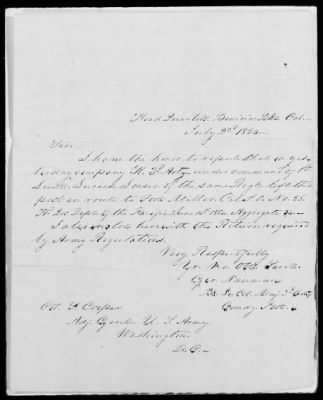 Head Quarters Benicia Bks Cal.
July 2d 1854
Sir
I have the honor to report that on yes-
terday company "K" 3d Arty under command of 1st
Lieut. of the same Regt. left this
post en route to Fort Miller Cal. No. 55.
Hd Qrs Dept of the Pacific June 1854 Aggregate
I also enclose herewith the Return required
by Army Regulations.
Very Respectfully
Yr. Mo. Obt. Servt.
Geo. Nauman
Bt Lt Col. Maj. 3d Arty
Comdg Post.
Col. S Cooper
Adj. Genl. U. S. Army
Washington
D.C.